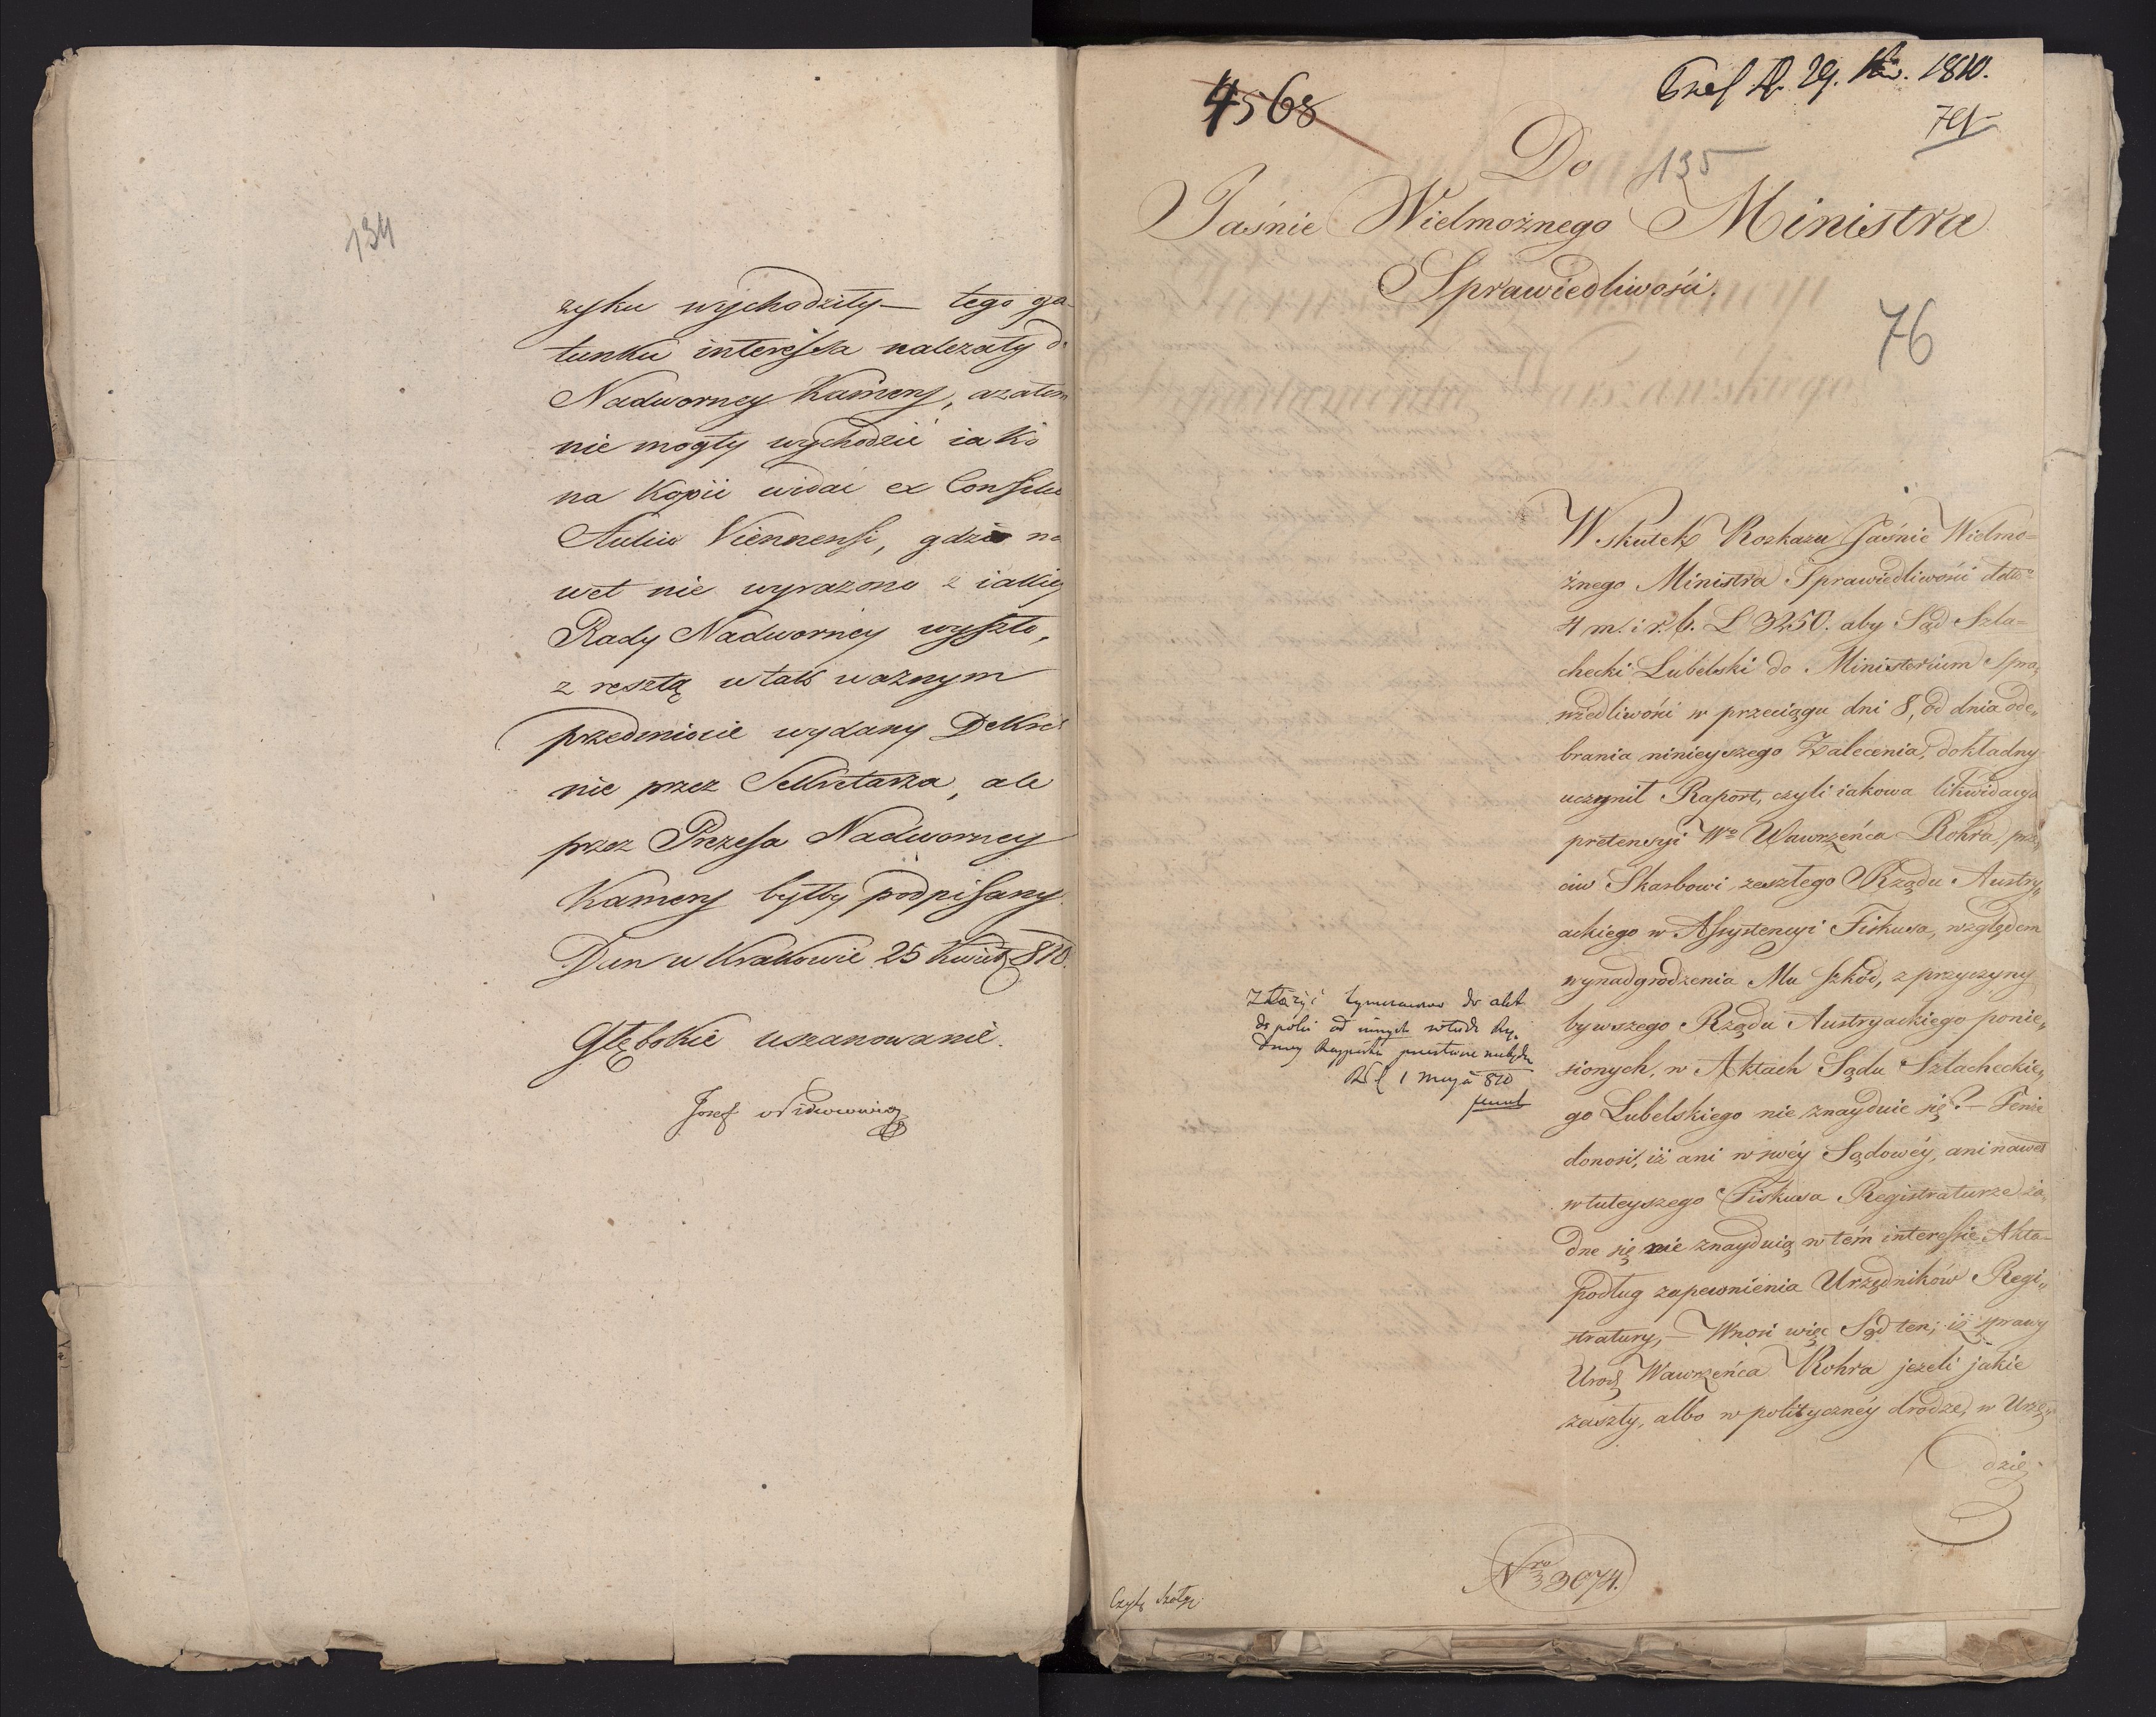 134
zyku wychodziły — tego ga-
tunku interessa należały d
Nadworney Kamery, azatem
nie mogły wychodzić iako
na Kopii widać ex Consilio
Aulico Viennensi, gdzie na
wet nie wyrażono z iakiey
Rady Nadworney wyszło,
z resztą w tak ważnym
przedmiocie wydany Dekret
nie przez Sekretarza, ale
przez Prezesa Nadworney
Kamery byłby podpisany.
Dan w Krakowie 25 Kwiet 810.
Głębokie uszanowanie.
Josef
4568
29. 1810.
Do 135
Jaśnie Wielmożnego Ministra
Sprawiedliwości.
76
W skutek Rozkazu Jaśnie Wielmo=
żnego Ministra Sprawiedliwości dato
4 m. i r. b. L 3250. aby Sąd Szla=
checki Lubelski do Ministerium Spra„
wiedliwości w przeciągu dni 8, od dnia ode„
brania ninieyszego Zalecenia, dokładny
uczynił Raport, czyli iakowa likwidacya
pretensyi Wo Wawrzeńca Rohra prze„
ciw Skarbowi zeszłego Rządu Austry„
ackiego w Assystencyi Fiskusa, względem
wynadgrodzenia Mu szkód, z przyczyny
bywszego Rządu Austryackiego ponie„
sionych, w Aktach Sądu Szlacheckie„
go Lubelskiego nie znayduie się? — Tenże
donosi, iż ani w swéy Sądowéy, ani nawet
w tuteyszego Fiskusa Registraturze ża„
dne się nie znayduią w tém interessie Akta —
podług zapewnienia Urzędników Regi„
stratury, — Wnosi więc Sąd ten, iż sprawy
Urodz Wawrzeńca Rohra jeżeli jakie
zaszły, albo w polityczney drodze, w Urzę„
dzie
Złożyć tymczasowo do akt
do póki od innych władz
1 Maja 810
Nro 33074.